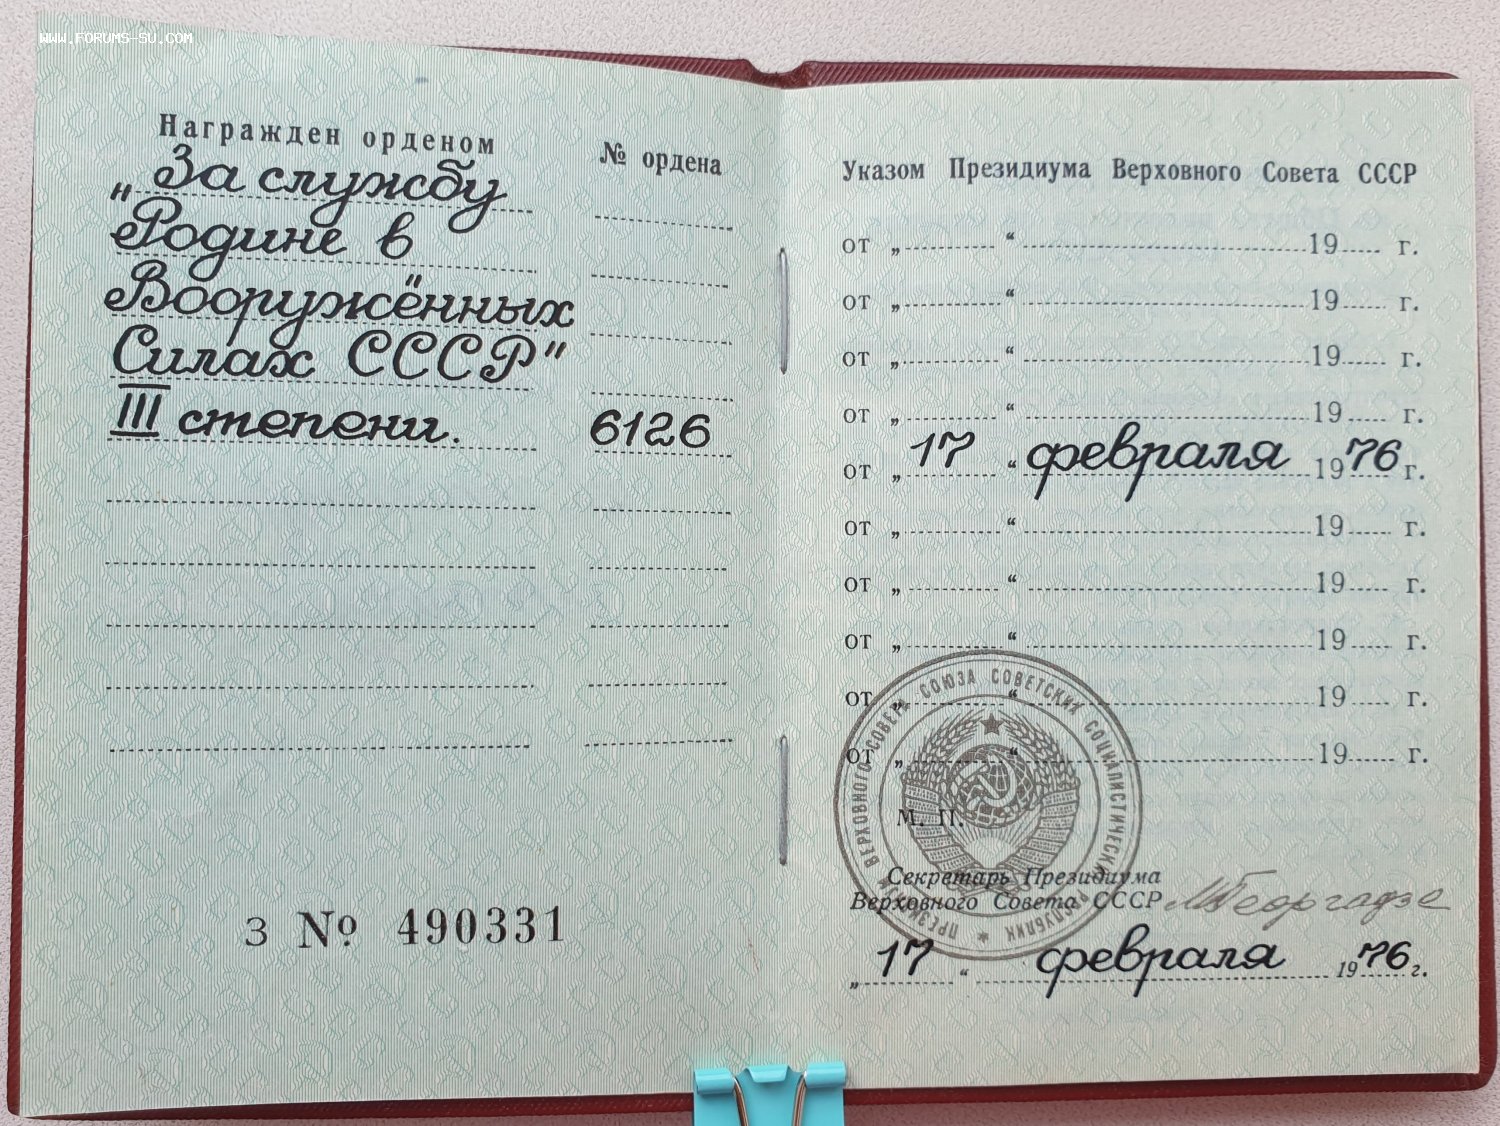 WWW.FORUMS-SU.COM
Награжден орденом
№ ордена
„За службу
Родине в
Вооружённых
Силах СССР"
III степени. 6126
З № 490331
Указом Президиума Верховного Совета СССР
от „ “ 19 г.
от „ “ 19 г.
от „ “ 19 г.
от „ “ 19 г.
от „ 17 “ февраля 1976 г.
от „ “ 19 г.
от „ “ 19 г.
от „ “ 19 г.
от „ “ 19 г.
от „ “ 19 г.
М. П.
ПРЕЗИДИУМ ВЕРХОВНОГО СОВЕТА СОЮЗА СОВЕТСКИХ СОЦИАЛИСТИЧЕСКИХ РЕСПУБЛИК
Секретарь Президиума
Верховного Совета СССР М Георгадзе
„ 17 “ февраля 1976 г.